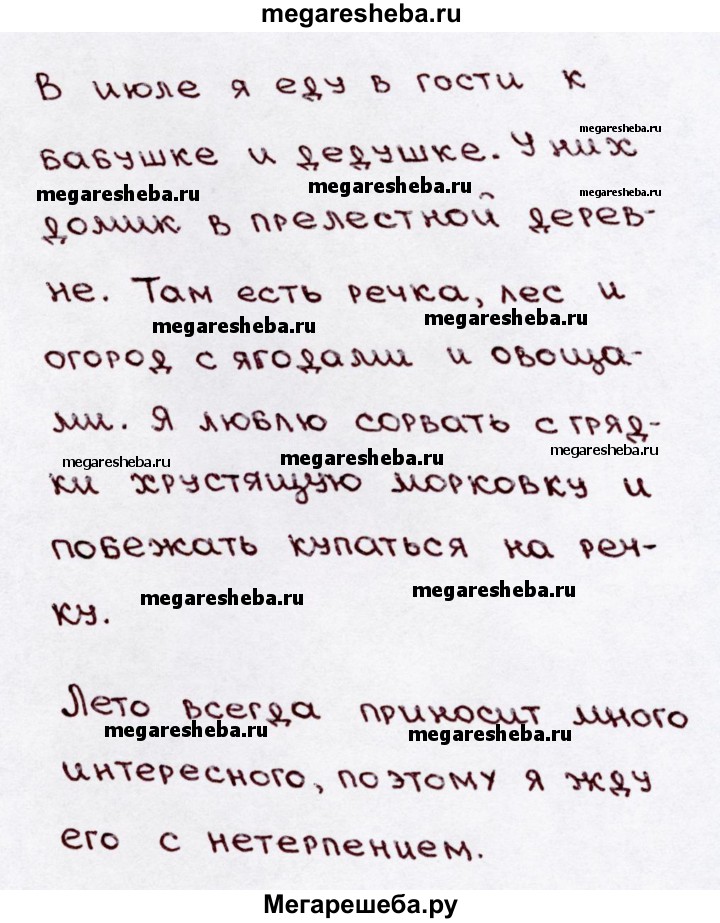 megaresheba.ru
В июле я еду в гости к
megaresheba.ru
бабушке и дедушке. У них
megaresheba.ru megaresheba.ru megaresheba.ru
домик в прелестной дерев-
не. Там есть речка, лес и
megaresheba.ru megaresheba.ru
огород с ягодами и овоща-
ми. Я люблю сорвать с гряд-
megaresheba.ru megaresheba.ru megaresheba.ru
ки хрустящую морковку и
побежать купаться на реч-
megaresheba.ru megaresheba.ru
ку.
Лето всегда приносит много
megaresheba.ru megaresheba.ru
интересного, поэтому я жду
его с нетерпением.
Мегарешеба.ру